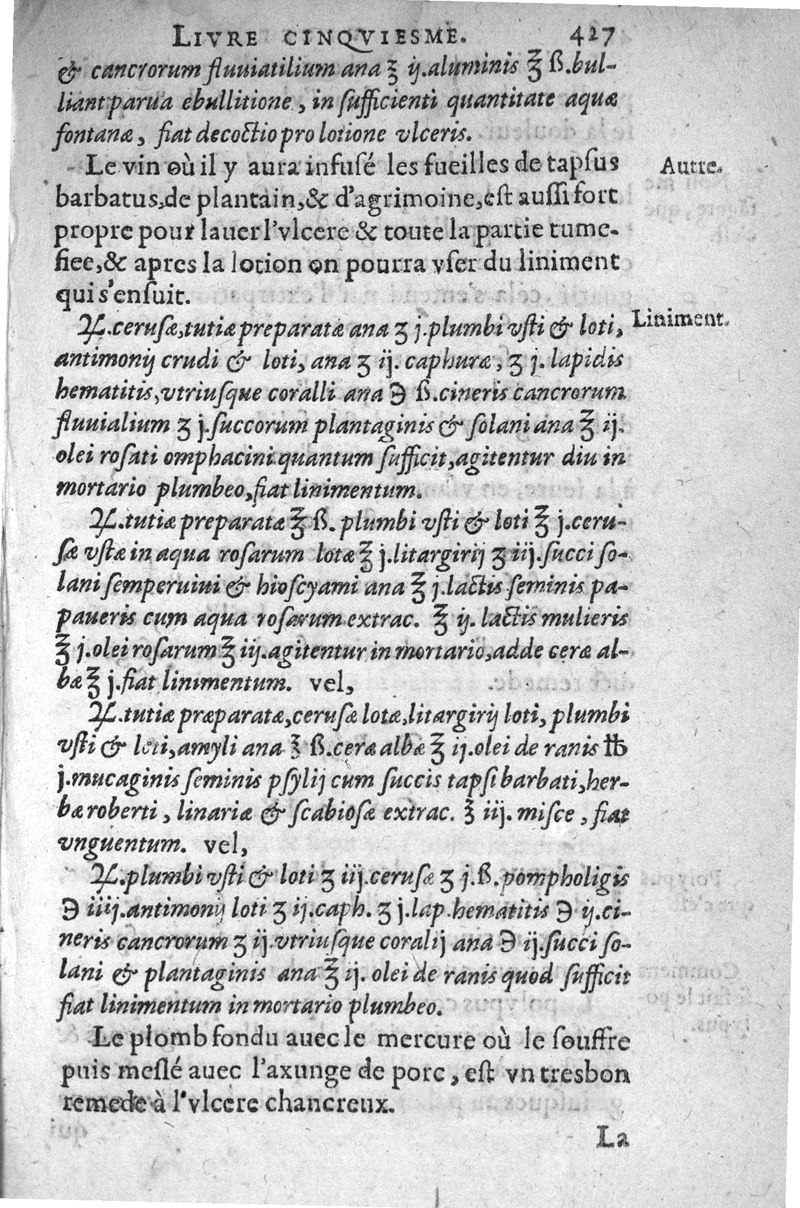 LIVRE CINQVIESME. 427
& cancrorum fluuiatilium ana ʒ ij.aluminis ℥ ß.bul-
liant parua ebullitione, in ſufficienti quantitate aquæ
fontanæ, fiat decoctio pro lotione vlceris.
Le vin où il y aura infuſé les fueilles de tapſus
Autre.
barbatus,de plantain,& d'agrimoine,eſt auſſi fort
propre pour lauer l'vlcere & toute la partie tume-
fiee,& apres la lotion on pourra vſer du liniment
qui s'enſuit.
♃.ceruſæ,tutiæ preparatæ ana ʒ j.plumbi vſti & loti,
Liniment.
antimonij crudi & loti, ana ʒ ij. caphuræ, ʒ j. lapidis
hematitis,vtriuſque coralli ana ℈ ß.cineris cancrorum
fluuialium ʒ j.ſuccorum plantaginis & ſolani ana ℥ ij.
olei roſati omphacini quantum ſufficit,agitentur diu in
mortario plumbeo,fiat linimentum.
♃.tutiæ preparatæ ℥ ß. plumbi vſti & loti ℥ j.ceru-
ſæ vſtæ in aqua roſarum lotæ ℥ j.litargirij ʒ iij.ſucci ſo-
lani ſemperuiui & hioſcyami ana ℥ j.lactis ſeminis pa-
paueris cum aqua roſarum extrac. ℥ ij. lactis mulieris
℥ j.olei roſarum ℥ iij.agitentur in mortario,adde ceræ al-
bæ ℥ j.fiat linimentum. vel,
♃.tutiæ præparatæ,ceruſæ lotæ,litargirij loti, plumbi
vſti & loti,amyli ana ℥ ß.ceræ albæ ℥ ij.olei de ranis ℔
j.mucaginis ſeminis pſylij cum ſuccis tapſi barbati,her-
bæ roberti, linariæ & ſcabioſæ extrac. ℥ iij. miſce, fiat
vnguentum. vel,
♃.plumbi vſti & loti ʒ iij.ceruſæ ʒ j.ß.pompholigis
℈ iiij.antimonij loti ʒ ij.caph. ʒ j.lap.hematitis ℈ ij.ci-
neris cancrorum ʒ ij.vtriuſque coralij ana ℈ ij.ſucci ſo-
lani & plantaginis ana ℥ ij. olei de ranis quod ſufficit
fiat linimentum in mortario plumbeo.
Le plomb fondu auec le mercure où le ſouffre
puis meſlé auec l'axunge de porc, eſt vn tresbon
remede à l'vlcere chancreux.
La